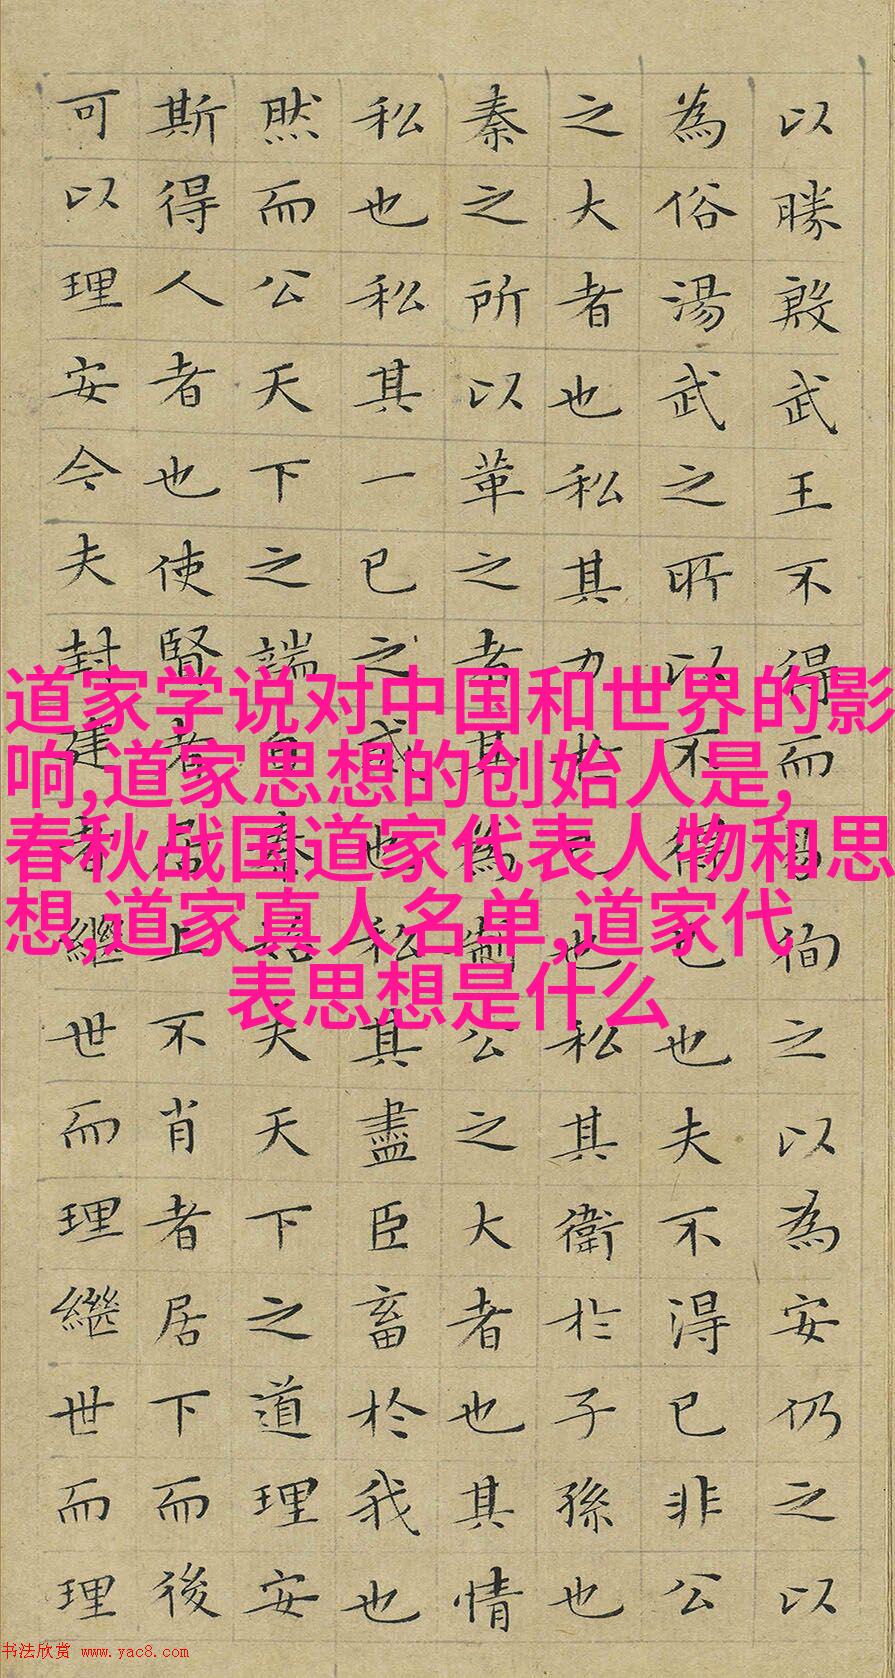 以勝殷武王不得而易徇之以為安仍之以
為俗湯武之所以不得已也夫不得已非公
之大者也私其力於己也私其衛於子孫也
秦之所以革之者其為制公之大者也其情
私也私其一己之威也私其盡臣畜於我也
然而公天下之端自秦始夫天下之道理安
斯得人者也使賢者居上不肖者居下而後
可以理安今夫封建者繼世而理繼世而理
道家学说对中国和世界的影
响,道家思想的创始人是,
春秋战国道家代表人物和思
想,道家真人名单,道家代
表思想是什么
书法欣赏 www.yac8.com